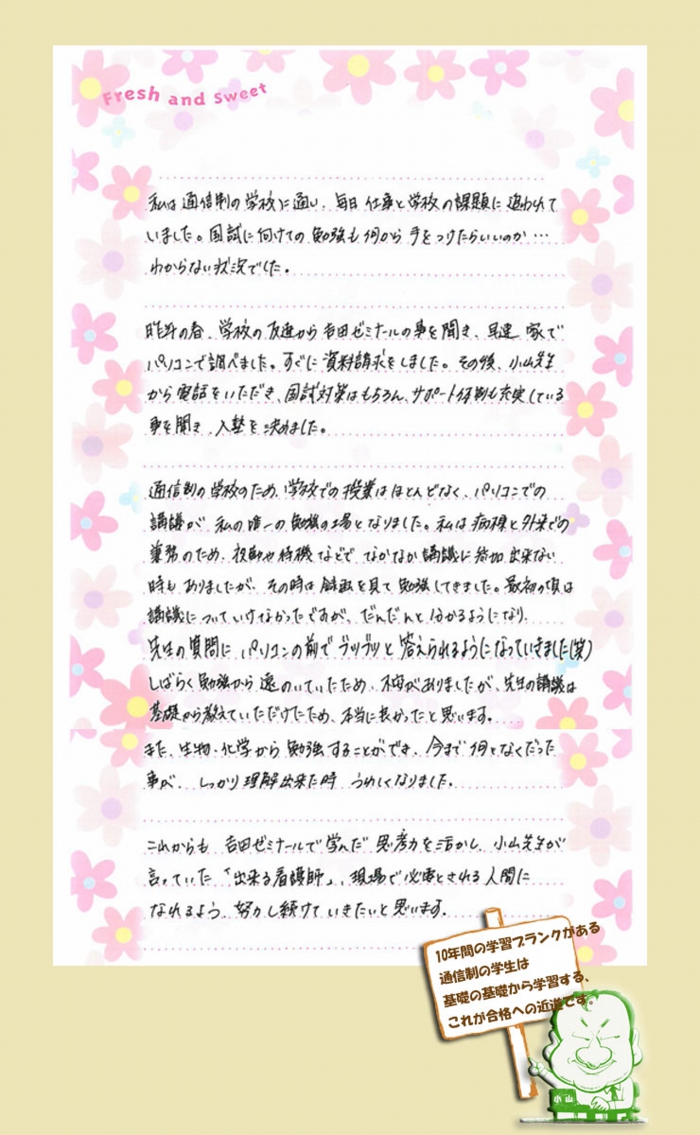 Fresh and Sweet
私は通信制の学校に通い、毎日仕事と学校の課題に追われて
いました。国試に向けての勉強も何から手をつけたらいいのか…
わからない状況でした。
昨年の春、学校の友達から吉田ゼミナールの事を聞き、早速家で
パソコンで調べました。すぐに資料請求をしました。その後、小山先生
から電話をいただき、国試対策はもちろん、サポート体制も充実している
事を聞き、入塾を決めました。
通信制の学校のため、学校での授業はほとんどなく、パソコンでの
講議が、私の唯一の勉強の場となりました。私は病棟と外来での
業務のため、夜勤や待機などで、なかなか講議に参加出来ない
時もありましたが、その時は録画を見て勉強してきました。最初の頃は
講議についていけなかったですが、だんだんと分かるようになり、
先生の質問にパソコンの前でブツブツと答えられるようになっていきました(笑)
しばらく勉強から遠のいていたため、不安がありましたが、先生の講議は
基礎から教えていただけたため、本当に良かったと思います。
また、生物・化学から勉強することができ、今まで何となくだった
事が、しっかり理解出来た時、うれしくなりました。
これからも、吉田ゼミナールで学んだ思考力を活かし、小山先生が
言っていた「出来る看護師」、現場で必要とされる人間に
なれるよう、努力し続けていきたいと思います。
10年間の学習ブランクがある
通信制の学生は
基礎の基礎から学習する、
これが合格への近道です。
小山